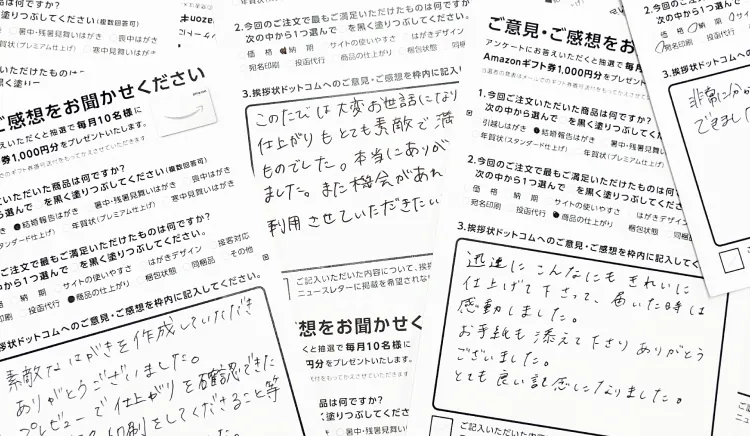 ご感想をお聞かせください
いただくと抽選で毎月10名様に
券1,000円分をプレゼントいたします。
いただいた商品は何ですか?
を黒く塗りつぶしてください(複数回答可)
●結婚報告はがき
年賀状(プレミアム仕上げ)
寒中見舞いはがき
ご注文で最もご満足いただけたものは何ですか?
次の中から1つ選んで を黒く塗りつぶしてください。
価格 納期 サイトの使いやすさ はがきデザイン 接客対応
投函代行 ●商品の仕上がり 梱包状態 同梱品 その他
挨拶状ドットコムへのご意見・ご感想を枠内に記入してください。
素敵なはがきを作成していただき
ありがとうございました。
プレビューで仕上がりを確認できた
印刷をしてくださること等
2.今回のご注文で最もご満足いただけたものは何ですか?
次の中から1つ選んで を黒く塗りつぶしてください。
価格 納期 サイトの使いやすさ はがきデザイン
宛名印刷 投函代行 商品の仕上がり 梱包状態 同梱品
3.挨拶状ドットコムへのご意見・ご感想を枠内に記
このたびは大変お世話になり
仕上がりもとても素敵で満
ものでした。本当にありが
ました。また機会があれ
利用させていただきたい
ご記入いただいた内容について、挨拶
ニュースレターに掲載を希望されな
想をお聞かせく
と抽選で毎月10名様に
円分をプレゼントいたします。
品は何ですか?
塗りつぶしてくださ
暑中・残暑見舞い
ご意見・ご感想をお
アンケートにお答えいただくと抽選で毎
Amazonギフト券1,000円分をプレゼン
1.今回ご注文いただいた商品は何ですか?
次の中から1つ選んで を黒く塗りつぶしてく
引越しはがき ●結婚報告はがき 暑中・残暑
年賀状(スタンダード仕上げ) 年賀状(プレミアム仕上げ)
2.今回のご注文で最もご満足いただけたものは
次の中から1つ選んで を黒く塗りつぶしてくだ
価格 納期 サイトの使いやすさ はがきデザイン
宛名印刷 投函代行 ●商品の仕上がり 梱包状態
3.挨拶状ドットコムへのご意見・ご感想を枠内に記入してく
迅速にこんなにもきれいに
仕上げて下さって、届いた時は
感動しました。
お手紙も添えて下さりありがとう
ございました。
とても良い記念になりました。
ご記入いただいた内容につ
ニュースレターに掲載を
宛名印刷 投函代行
3.挨拶状ドットコムへの
できまし